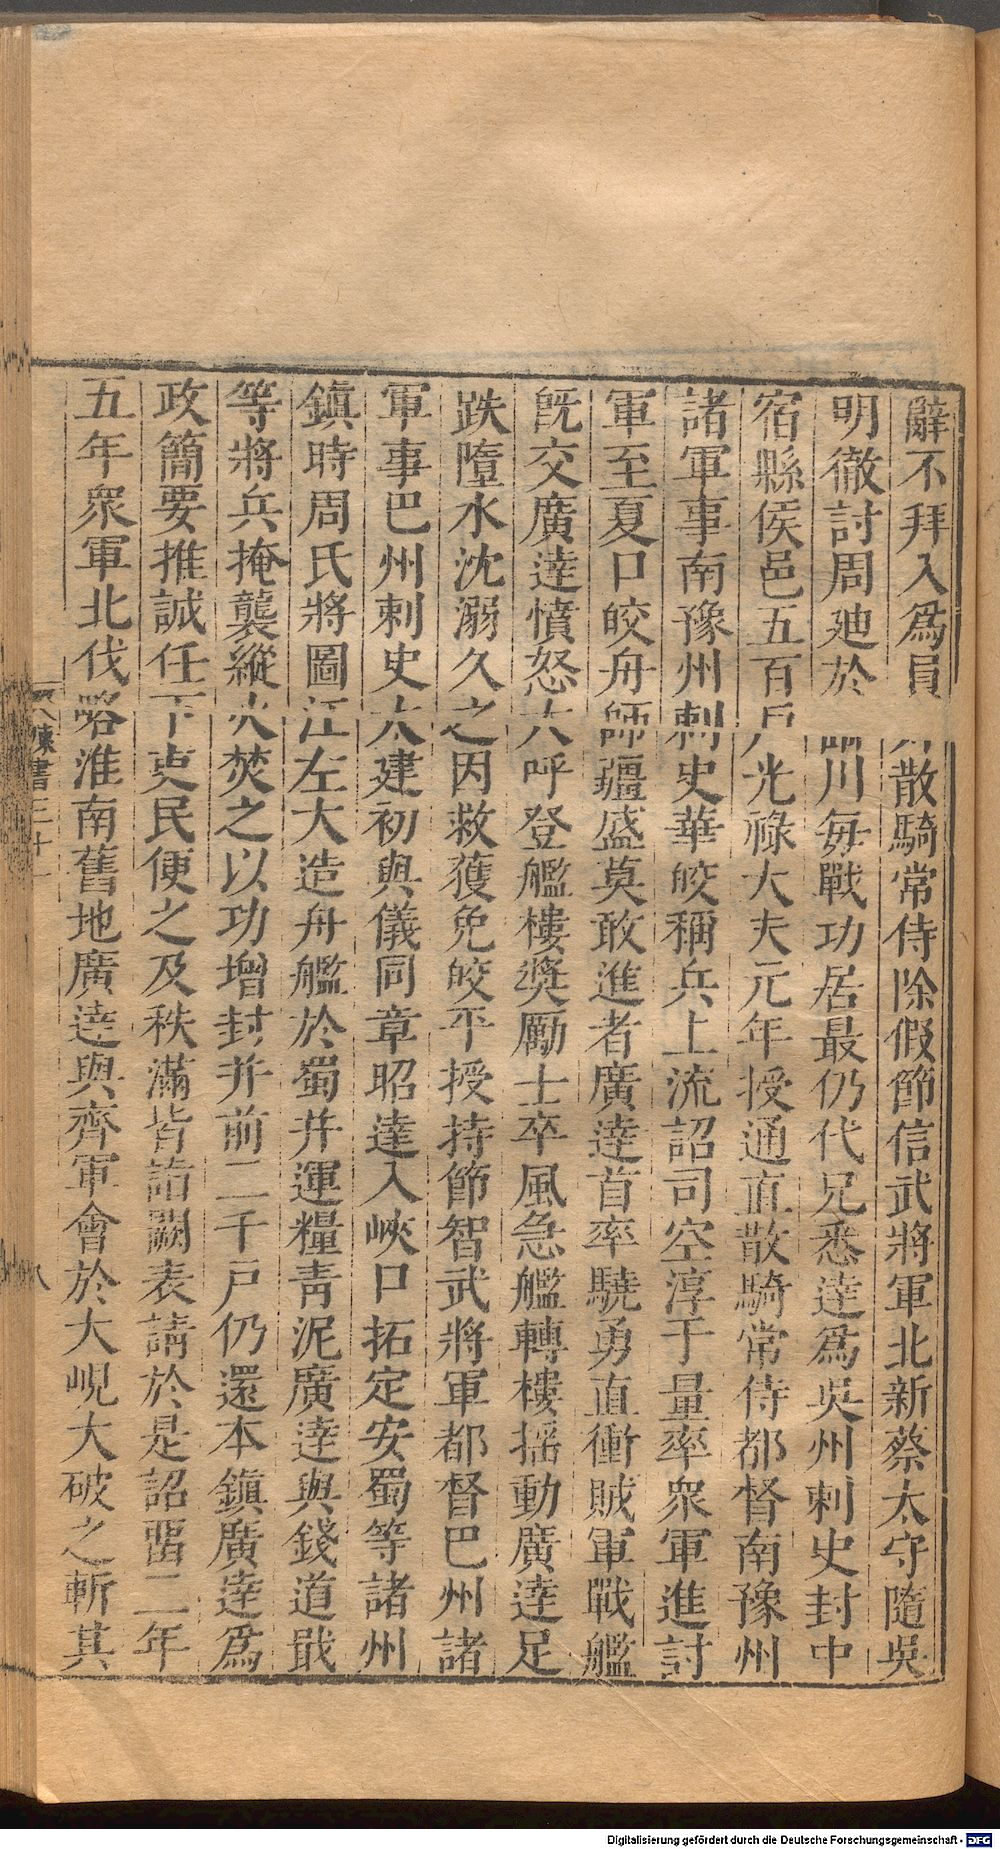 辭不拜入爲員外散騎常侍除假節信武將軍北新蔡太守隨吳
明徹討周廸於臨川每戰功居最仍代兄悉達爲吳州刺史封中
宿縣侯邑五百戶光祿大夫元年授通直散騎常侍都督南豫州
諸軍事南豫州刺史華皎稱兵上流詔司空淳于量率衆軍進討
軍至夏口皎舟師彊盛莫敢進者廣達首率驍勇直衝賊軍戰艦
旣交廣達憤怒大呼登艦樓獎勵士卒風急艦轉樓搖動廣達足
跌墮水沈溺久之因救獲免皎平授持節智武將軍都督巴州諸
軍事巴州刺史太建初與儀同章昭達入峽口拓定安蜀等諸州
鎮時周氏將圖江左大造舟艦於蜀并運糧靑泥廣達與錢道戢
等將兵掩襲縱火焚之以功增封并前二千戶仍還本鎮廣達爲
政簡要推誠任下吏民便之及秩滿皆詣闕表請於是詔畱二年
五年衆軍北伐略淮南舊地廣達與齊軍會於大峴大破之斬其
陳書三十一
八
Digitalisierung gefördert durch die Deutsche Forschungsgemeinschaft - DFG